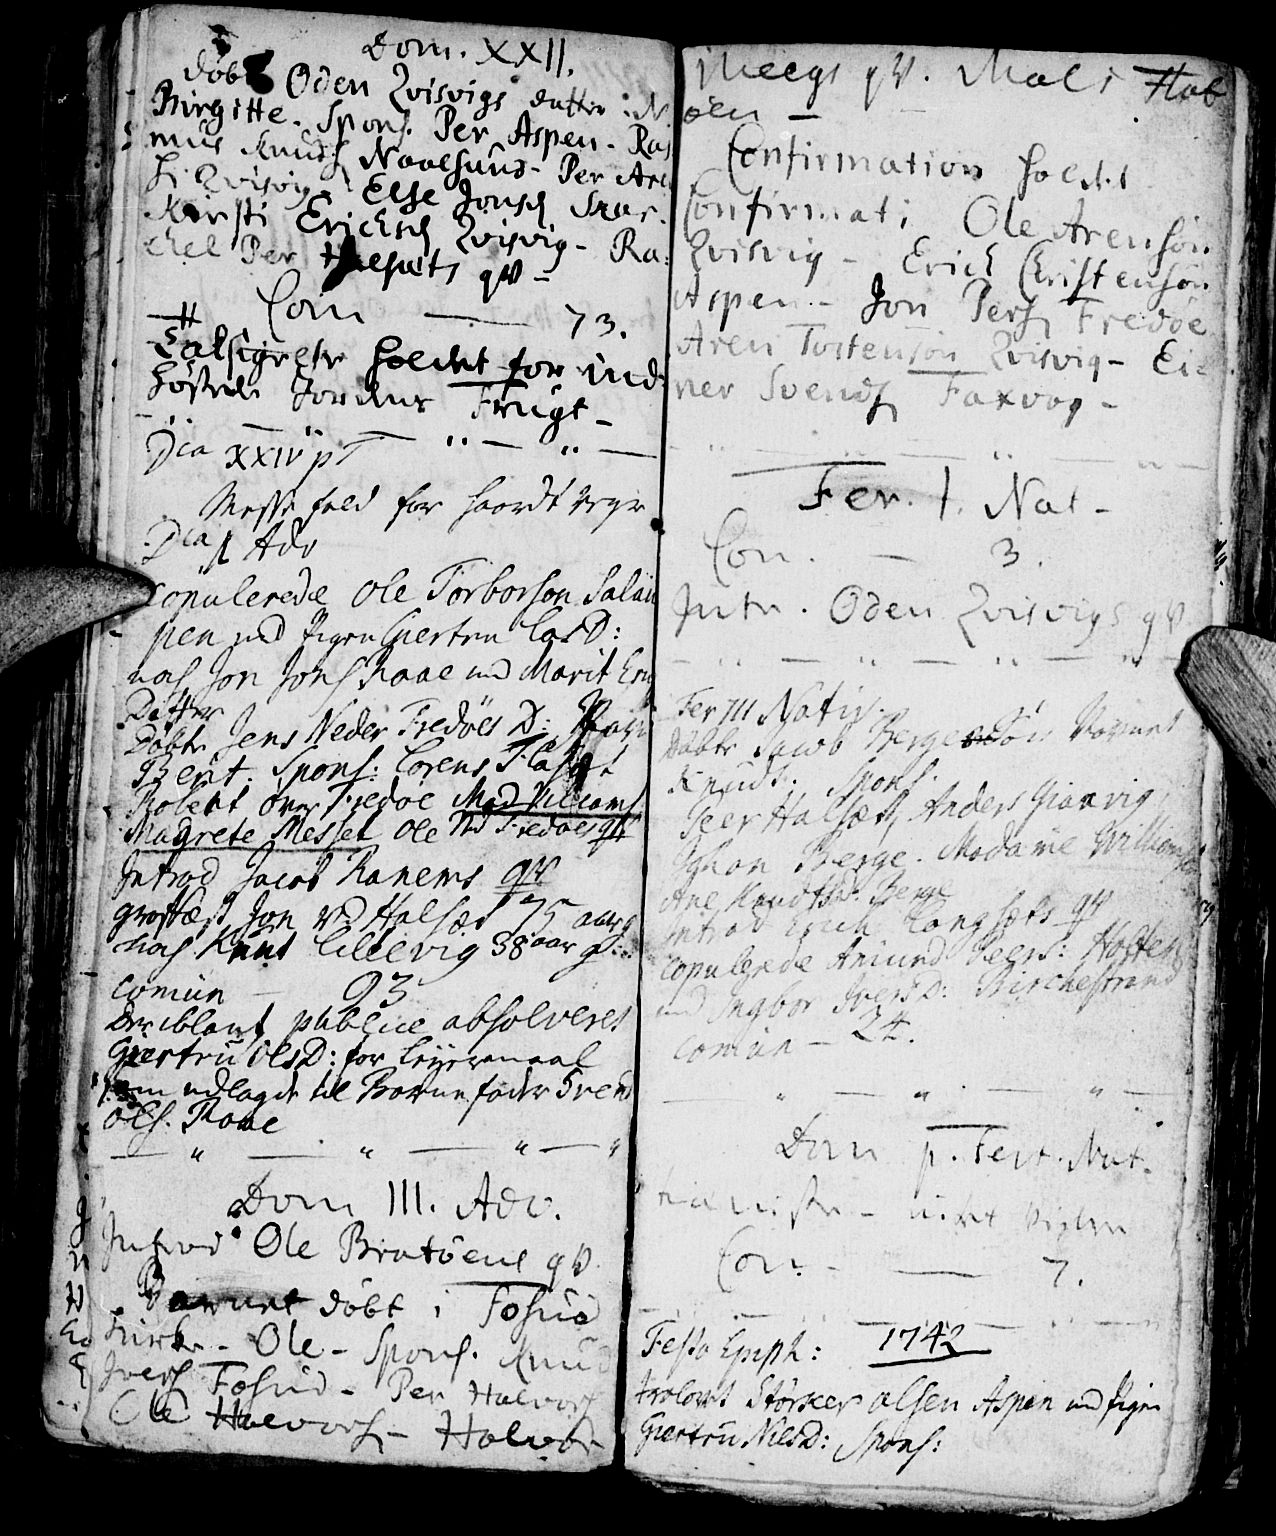 Dom. XXII.
döbt Oden Qvisvigs datter: N
Birgitte. Spons. Per Aspen - Ras
mus Knuds Naalsuns - Per Are
Qvisvig - Else Jonsd Skar.
Kirsti Ericksd Qvisvig - Ra:
chel Per Halsæts qv -
Com — 73.
Taksigelse holdet for ind
höstede Jordens Frugt -
Dca XXIV p T
Messe fald for haardt Veyr
Dca 1 Adv
Copulerede Ole Torborson Salaü
pen med Pigen Giertru LarsD:
nos Jon Jons Raae med Marit Er
Datter
Döbte Jens Neder Fredöes D:
Berit. Spons: Lorens
Robert over Fredöe Mad Viliams
Magrete Messel Ole Nd Fredöes qv
Introd Jacob Ranems qv
grafæst Jon ved Halsæt 75 aar g
nos Knut Lillevig 38 aar g:
Comün — 93
Der iblant publice absolveret
Giertrü OlsD: for Leyermaal
som udlagde til Barnefader Svend
Ols. Raae
Dom III. Adv.
Introd Ole Bratöens qv.
Barnet döbt i Fosnæ
Kirke. - Ole - Spons. Knud
Ivers Fosna - Per Halvors
Ole Halvors - Halvor
Meegs qv. Mali Hab
öen —
Confirmation holdet
Confirmati Ole Arensön
Qvisvig - Erick Christensön
Aspen - Jon Pers Fredöe
Aren Tostensön Qvisvig - Ei
ner Svends Faxvog -
Fer. 1. Nat -
Con. — 3.
Intr. Oden Qvisvigs qv
Fer III Nativ.
Döbte Jacob Berge Sön Barnet
Knud. Spons.
Peer Halsæt, Anders Giørvig
Johan Berge. Madame William
Ane KnudtsD: Berge
Introd Erich Langsæts qv
Copulerede Amund Peers: Holten
med Ingbor IversD: Birchestrand
Comün — 24.
Dom p. Fest. Nat.
Con. — 7.
Festo Epiph: 1742
trolovet Störker Olsen Aspen med Pigen
Giertru NilsD: Spons: